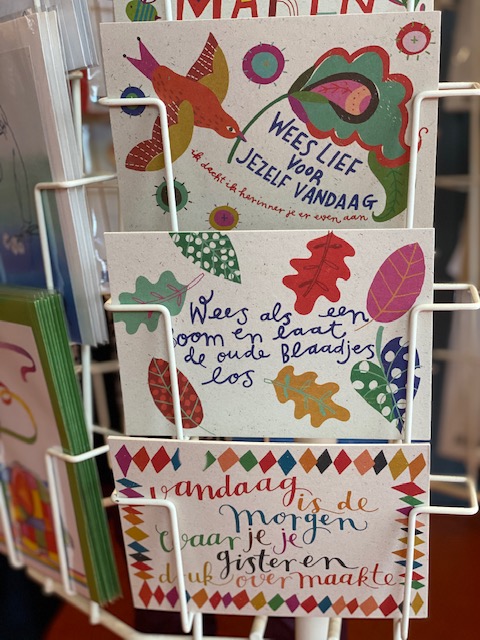 MAKEN
WEES LIEF
VOOR
JEZELF VANDAAG
ik dacht ik herinner je er even aan
Wees als een
boom en laat
de oude blaadjes
los
vandaag
is de
morgen
waar je je
gisteren
druk over maakte